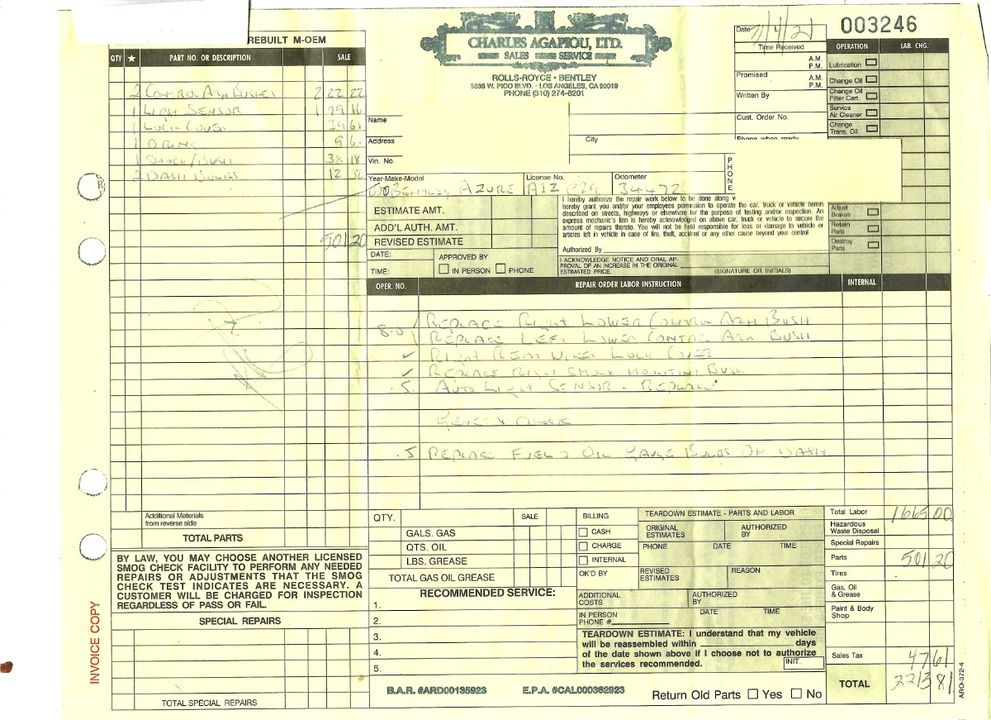 REBUILT M-OEM
QTY ★ PART NO. OR DESCRIPTION SALE
2 CONTROL ARM BUSHES 222 22
1 LIGHT SENSOR 179 16
1 LOCK COVER
1 O RING
1 SHOCK/BUSH 38 18
2 DASH BULBS 12
501 20
CHARLES AGAPIOU, LTD.
SALES SERVICE
ROLLS-ROYCE · BENTLEY
5835 W. PICO BLVD. · LOS ANGELES, CA 90019
PHONE (310) 274-6201
Date 7/4/21
003246
Time Received A.M. P.M.
Promised A.M. P.M.
Written By
Cust. Order No.
Phone when ready
OPERATION LAB. CHG.
Lubrication
Change Oil
Change Oil Filter Cart.
Service Air Cleaner
Change Trans. Oil
Adjust Brakes
Retain Parts
Destroy Parts
Name
Address City
Vin. No.
PHONE
Year-Make-Model License No. Odometer
00 BENTLEY AZURE 34472
ESTIMATE AMT.
ADD'L AUTH. AMT.
REVISED ESTIMATE
DATE: APPROVED BY
TIME: IN PERSON PHONE
I hereby authorize the repair work below to be done along
hereby grant you and/or your employees permission to operate the car, truck or vehicle herein
described on streets, highways or elsewhere for the purpose of testing and/or inspection. An
express mechanic's lien is hereby acknowledged on above car, truck or vehicle to secure the
amount of repairs thereto. You will not be held responsible for loss or damage to vehicle or
articles left in vehicle in case of fire, theft, accident or any other cause beyond your control
Authorized By
I ACKNOWLEDGE NOTICE AND ORAL AP-
PROVAL OF AN INCREASE IN THE ORIGINAL
ESTIMATED PRICE. (SIGNATURE OR INITIALS)
OPER. NO. REPAIR ORDER LABOR INSTRUCTION INTERNAL
8.0 REPLACE RIGHT LOWER CONTROL ARM BUSH
REPLACE LEFT LOWER CONTROL ARM BUSH
✓ RIGHT REAR WHEEL LOCK COVER
✓ REPLACE RIGHT SHOCK MOUNTING BUSH
.5 AUTO LIGHT SENSOR - REPLACE
.5 REPLACE FUEL & OIL GAUGE BULBS ON DASH
Additional Materials
from reverse side
TOTAL PARTS
BY LAW, YOU MAY CHOOSE ANOTHER LICENSED
SMOG CHECK FACILITY TO PERFORM ANY NEEDED
REPAIRS OR ADJUSTMENTS THAT THE SMOG
CHECK TEST INDICATES ARE NECESSARY. A
CUSTOMER WILL BE CHARGED FOR INSPECTION
REGARDLESS OF PASS OR FAIL.
SPECIAL REPAIRS
TOTAL SPECIAL REPAIRS
INVOICE COPY
QTY. SALE
GALS. GAS
QTS. OIL
LBS. GREASE
TOTAL GAS OIL GREASE
BILLING
CASH
CHARGE
INTERNAL
OK'D BY
TEARDOWN ESTIMATE - PARTS AND LABOR
ORIGINAL ESTIMATES AUTHORIZED BY
PHONE DATE TIME
REVISED ESTIMATES REASON
ADDITIONAL COSTS AUTHORIZED BY
IN PERSON PHONE # DATE TIME
TEARDOWN ESTIMATE: I understand that my vehicle
will be reassembled within days
of the date shown above if I choose not to authorize
the services recommended. INIT.
RECOMMENDED SERVICE:
1.
2.
3.
4.
5.
Total Labor 1665 00
Hazardous Waste Disposal
Special Repairs
Parts 501 20
Tires
Gas, Oil & Grease
Paint & Body Shop
Sales Tax 47 61
TOTAL 2213 81
B.A.R. #ARD00135923 E.P.A. #CAL000362923
Return Old Parts Yes No
ARO-372-4